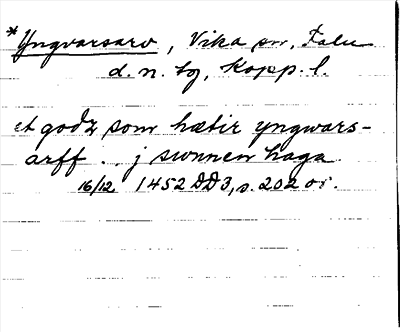 *Yngvarsarv, Vika sn, Falu
d. n. tg, Kopp. l.
et godz som hætir yngwars-
arff .. j swnnen haga
16/12 1452 DD3, s. 202 or.